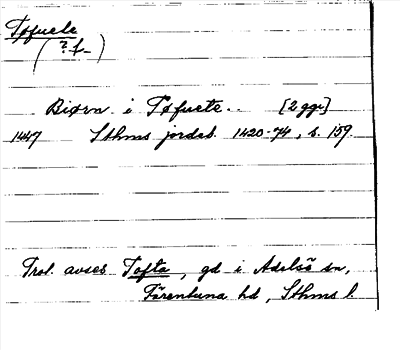 Tøfuete
(?f_)
Biørn i Tøfuete.. [2 ggr]
1447 Sthms jordeb. 1420-74, s. 159.
Trol. avses Tofta, gd i Adelsö sn,
Färentuna hd, Sthms l.